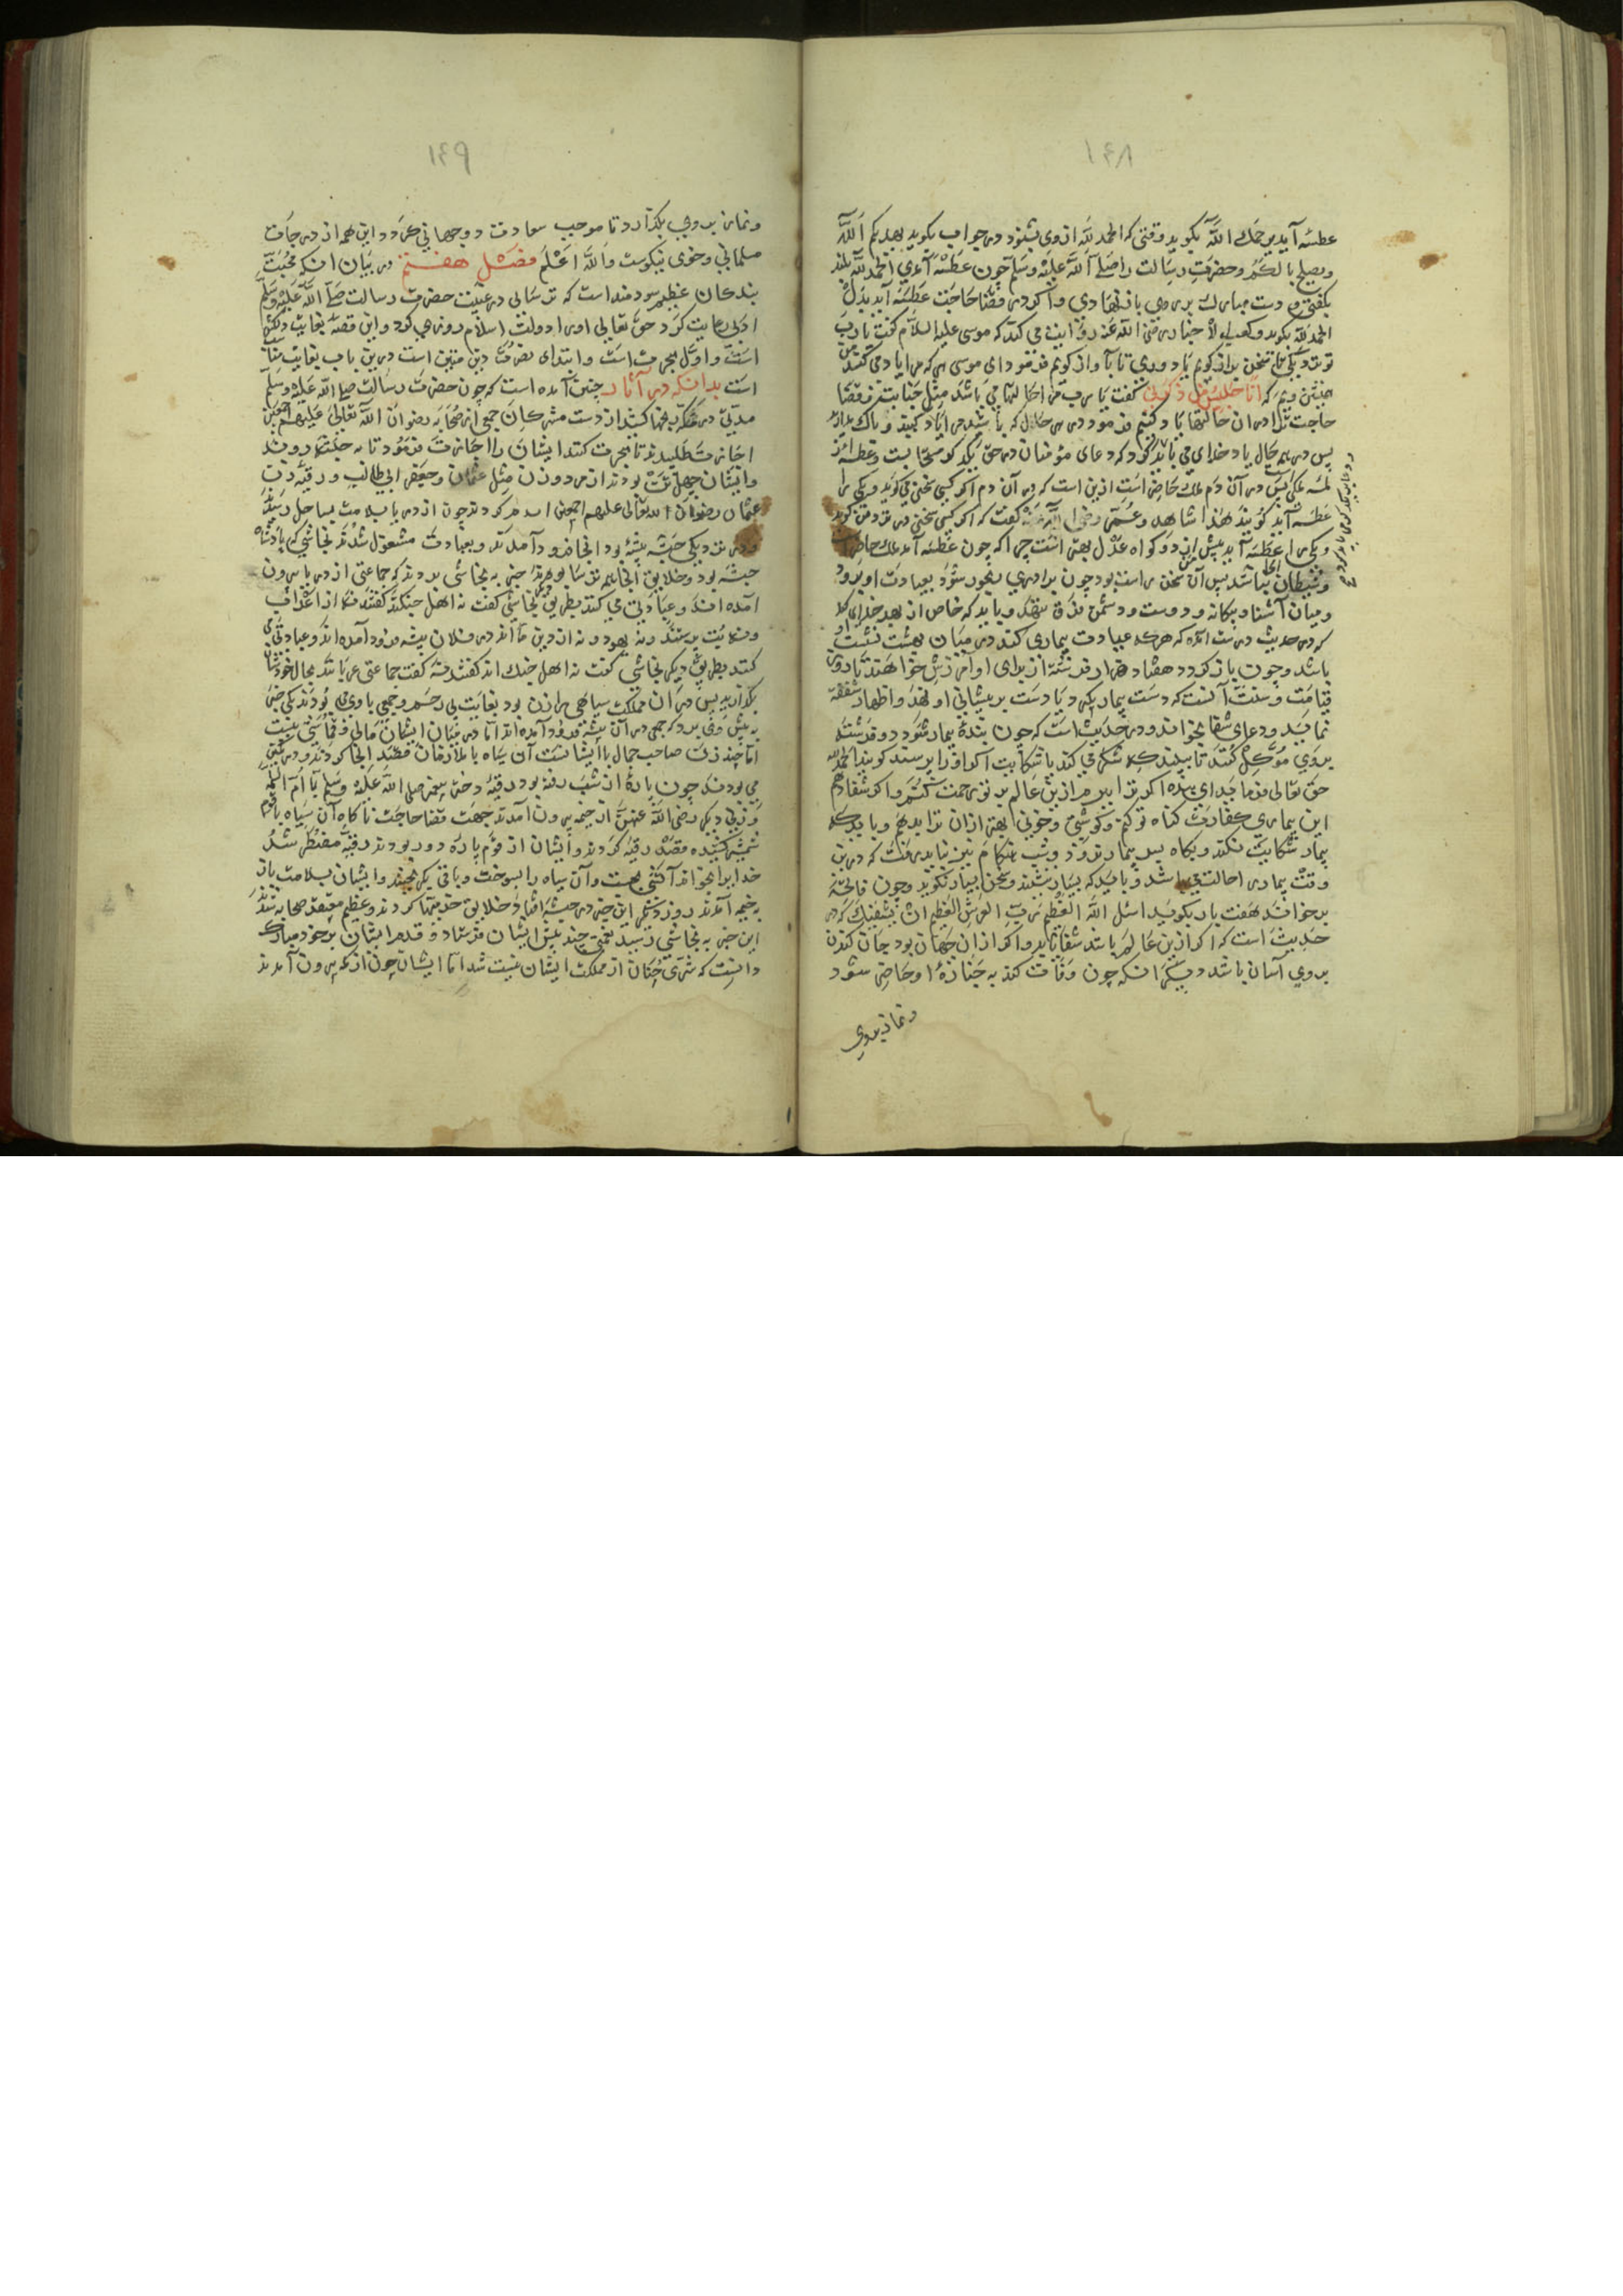 ١٤٨
عطسه آید یرحمک الله بگوید وقتی که الحمد لله از وی بشنود در جواب بگوید یهدیکم الله
ویصلح بالکم و حضرت رسالت را صلی الله علیه وسلم چون عطسه آمدی الحمد لله بلند
بگفتی و دست مبارک بر روی باز نهادی و اگر در قضا حاجت عطسه آید بدل
الحمد لله بگوید و کعب الاحبار رضی الله عنه روایت می کند که موسی علیه السلام گفت یا رب
تو نزدیکی تا سخن براز گویم یا دوری تا بآواز گویم فرمود ای موسی هر که مرا یاد می کند من
همنشین ویم که انا جلیس من ذکرنی گفت یا رب مرا حالتها می باشد مثل جنابت و قضا
حاجت ترا در ان حالتها یاد کنیم فرمود در هر حال که باشید مرا یاد کنید و باک مدارید
پس در همه حال یاد خدای می باید کرد که دعای مؤمنان در حق یکدیگر مستجابست و عطسه از
ملکیست در آن دم ملک حاضر است ازین است که در آن دم اگر کسی سخنی می گوید و یکی را
عطسه آید گویند هذا شاهد و عمر رضی الله عنه گفت که اگر کسی سخنی در نزد من گوید
و یکی را عطسه آید پیش از دو گواه عدل بهتر است چرا که چون عطسه آمد ملک حاضر است
و شیطان نباشد پس آن سخن راست بود چون برادری رنجور شود بعیادت او برود
و میان آشنا و بیگانه و دوست و دشمن فرق ننهد و باید که خاص از بهر خدای کند
که در حدیث درست آمده که هر که عیادت بیماری کند در میان بهشت نشسته
باشد و چون باز گردد هفتاد هزار فرشته از برای او آمرزش خواهند تا روز
قیامت و سنت آنست که دست بیمار بگیرد یا دست بر پیشانی او نهد و اظهار شفقه
نماید و دعای شفا بخواند و در حدیث است که چون بنده بیمار شود دو فرشته
بروی مؤکل کنند تا ببینند که شکر می کند یا شکایت اگر او را پرسند گوید الحمد لله
حق تعالی فرماید ای بنده اگر ترا ببرم ازین عالم بر تو رحمت کنم و اگر شفا دهم
این بیماری کفارت گناه تو کنم و گوشتی و خونی بهتر ازان ترا بدهم و باید که
بیمار شکایت نکند و بگاه پیش بیمار نرود و شب هنگام نیز نباید رفت که درین
وقت بیمار را حالت باشد و باید که بسیار ننشیند و سخن بسیار نگوید و چون فاتحة
برخواند هفت بار بگوید اسئل الله العظیم رب العرش العظیم ان یشفیک که در
حدیث است که اگر ازین عالم باشد شفا یابد و اگر ازان جهان بود جان کندن
بروی آسان باشد دیگر انکه چون وفات کند به جنازه او حاضر شود
ونماز بروی
١٤٩
ونماز بروی بگذارد تا موجب سعادت دو جهانی گردد و این همه از درجات
مسلمانی و خوی نیکوست والله اعلم فصل هفتم در بیان انکه محبت
بندگان عظیم سودمند است که ترسائی در غیبت حضرت رسالت صلی الله علیه وسلم
ادبی رعایت کرد حق تعالی او را دولت اسلام روزی کرد و این قصه بغایت دلکش
است و اول هجرت است و ابتدای نصرت دین متین است درین باب بغایت مناسب
است بدانکه در آثار چنین آمده است که چون حضرت رسالت صلی الله علیه وسلم
مدتی در مکه رنجها کشید از دست مشرکان جمعی از صحابه رضوان الله تعالی علیهم اجمعین
اجازت طلبیدند تا هجرت کنند ایشان را اجازت فرمود تا به حبشه روند
وایشان چهل تن بودند از مرد و زن مثل عثمان و جعفر ابی طالب و رقیه زن
عثمان رضوان الله تعالی علیهم اجمعین سفر کردند چون از دریا بسلامت بساحل رسیدند
ودر نزدیکی حبشه بیشه بود انجا فرود آمدند و بعبادت مشغول شدند نجاشی که پادشاه
حبشه بود و خلایق انجا همه ترسا بودند خبر به نجاشی بردند که جماعتی از دریا بیرون
آمده اند و عبادتی می کنند بطریقی دیگر نجاشی گفت نه اهل جنگند گفتند نه از اعراب
و نه بت پرستند و نه یهود و نه از دین ما اند در فلان بیشه فرود آمده اند و عبادتی می
کنند بطریق دیگر نجاشی گفت نه اهل جنگ اند گفتند نه گفت جماعتی غریبانند بحال خودشان
بگذارید پس در ان مملکت سیاهی راهزن بود بغایت بی رحم و جمعی با وی بودند یکی خبر
به پیش وی برد که جمعی در آن بیشه فرود آمده اند اما در میان ایشان مالی و قماشی نیست
اما چند زن صاحب جمال با ایشانست آن سیاه با ملازمان قصد انجا کردند و در کمین
می بودند چون پاره از شب رفته بود رقیه دختر پیغمبر صلی الله علیه وسلم با ام سلمه
و زنی دیگر رضی الله عنهن از خیمه بیرون آمدند جهت قضا حاجت ناگاه آن سیاه با قوم
شمشیر کشیده قصد رقیه کردند و ایشان از قوم پاره دور بودند رقیه مضطر شد
خدا را بخواند آتشی بجست و آن سیاه را بسوخت و باقی بگریختند و ایشان بسلامت باز
به خیمه آمدند روز دیگر این خبر در حبشه افتاد و خلایق خدمتها کردند و عظیم معتقد صحابه شدند
این خبر به نجاشی رسید نعمتی چند پیش ایشان فرستاد و قدم ایشان بر خود مبارک
دانست که شر آن چنان از مملکت ایشان نیست شد اما ایشان چون از مکه بیرون آمدند